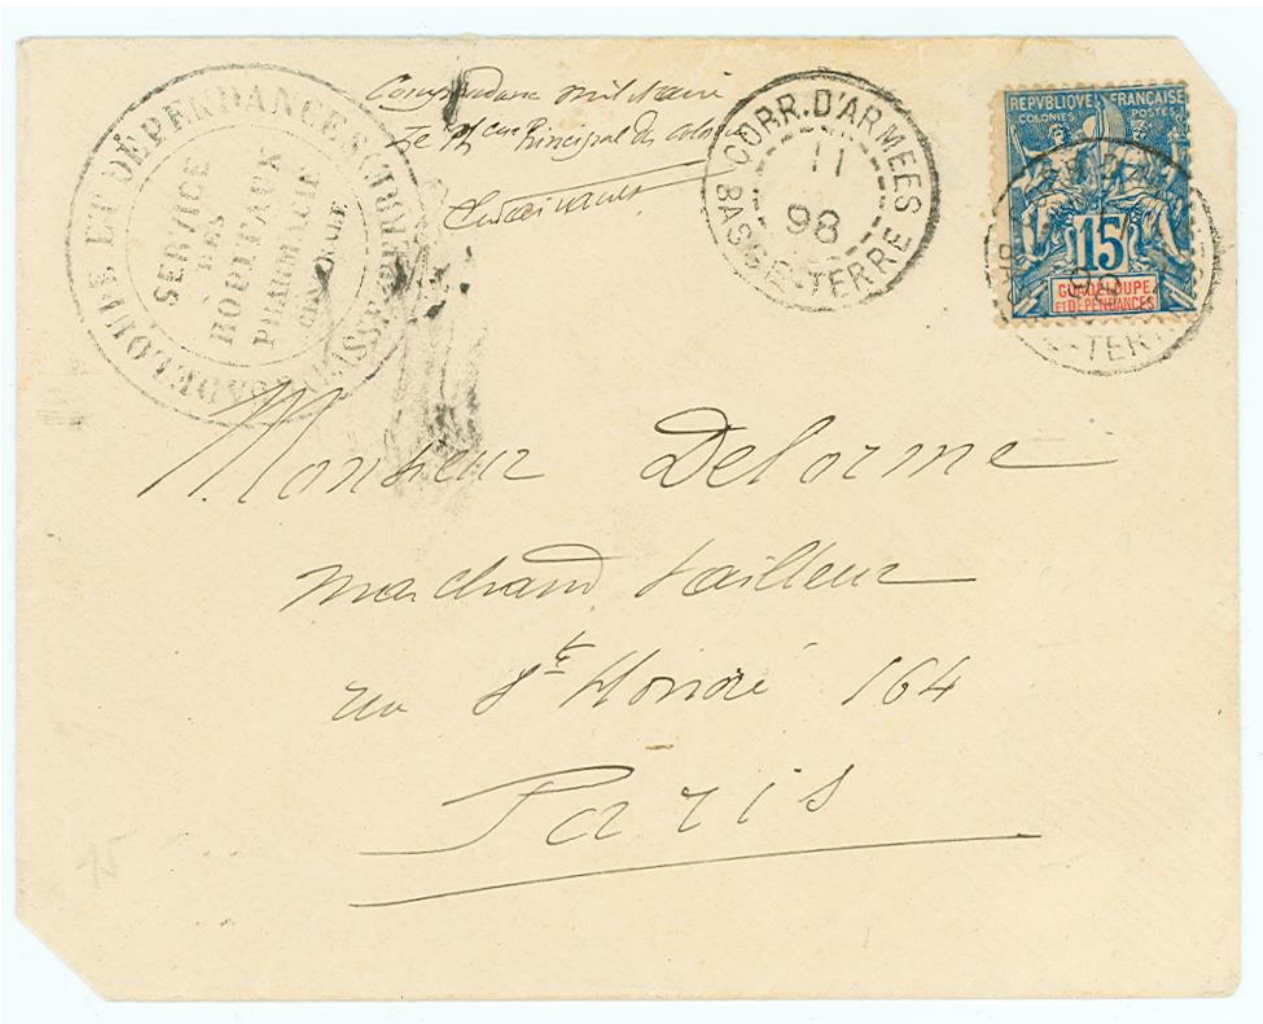 GUADELOUPE ET DÉPENDANCES
SERVICE
DES
HOPITAUX
PHARMACIE
CENTRALE
Correspondance militaire
Le Principal des
CORR. D'ARMEES
11
98
BASSE-TERRE
REPVBLIQVE FRANÇAISE
COLONIES POSTES
15
GUADELOUPE
ET DÉPENDANCES
Monsieur Delorme
marchand tailleur
rue St Honoré 164
Paris
15